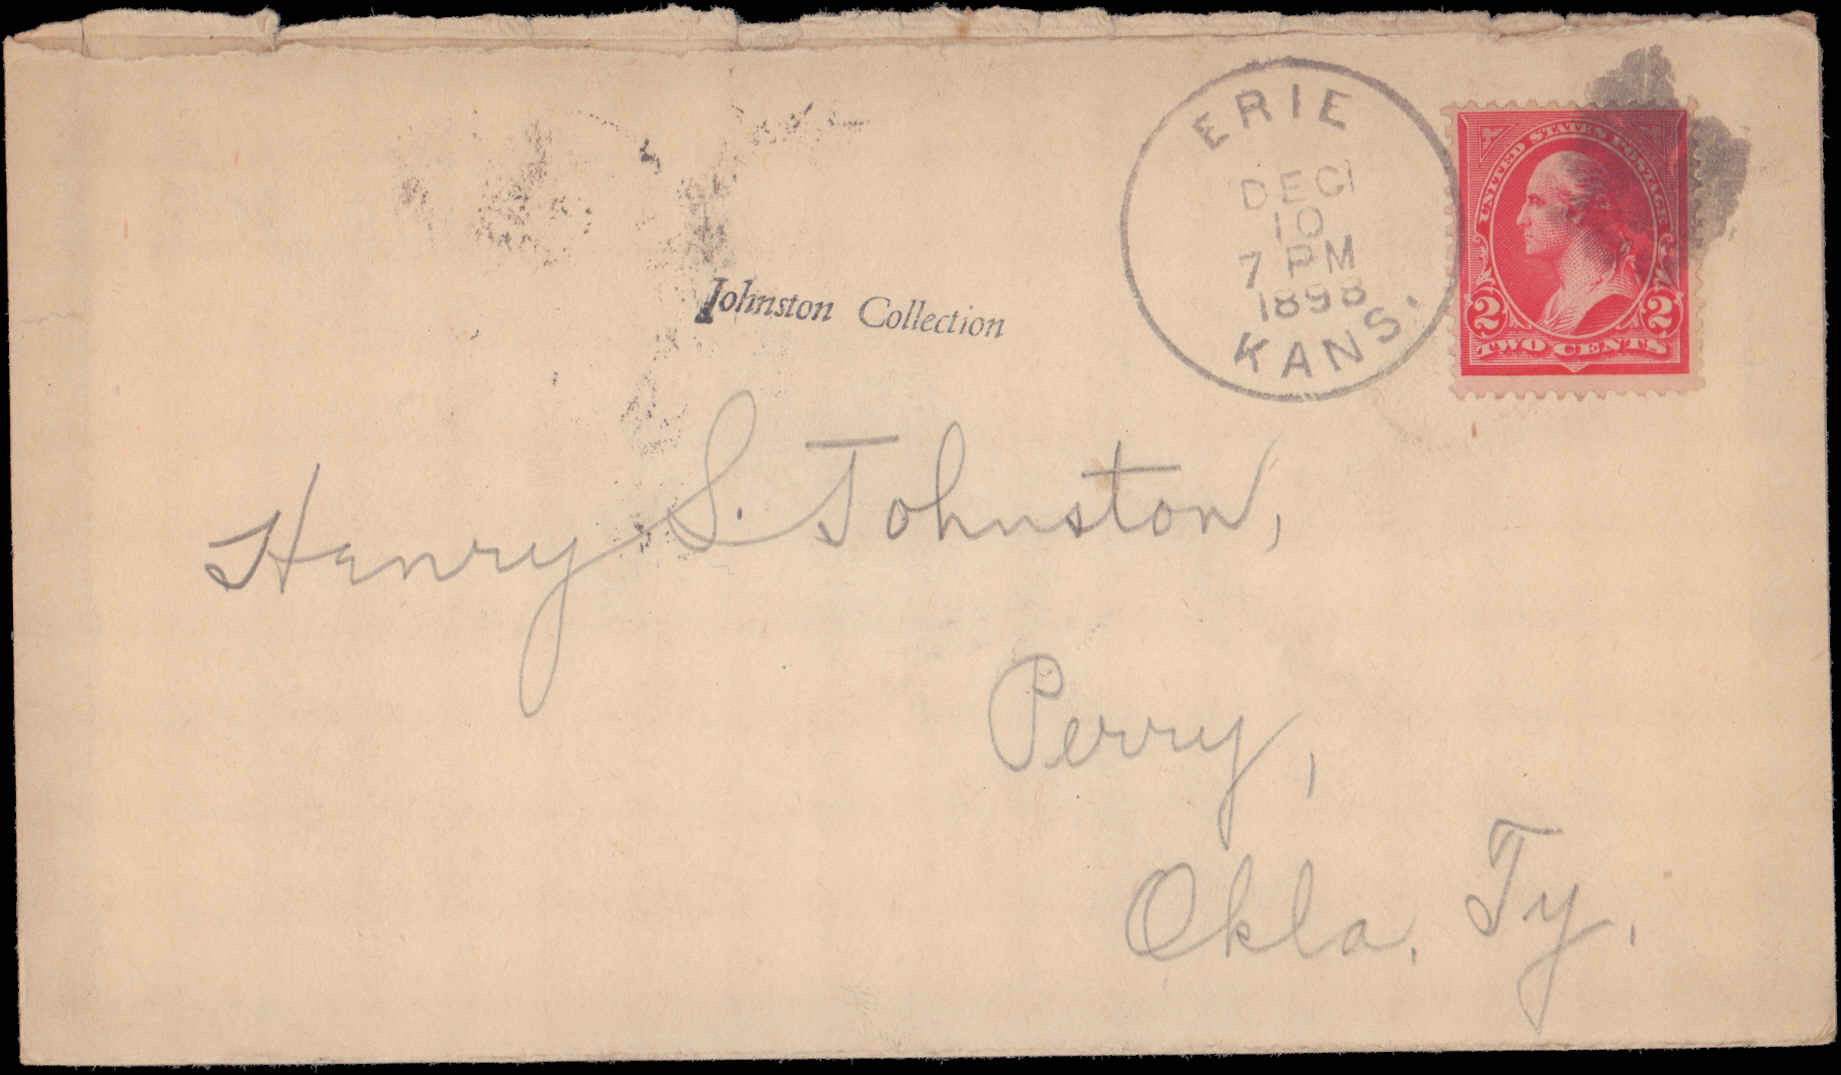 ERIE
DEC
10
7 PM
1898
KANS.
UNITED STATES POSTAGE
2 2
TWO CENTS
Johnston Collection
Henry S. Johnston,
Perry,
Okla. Ty.